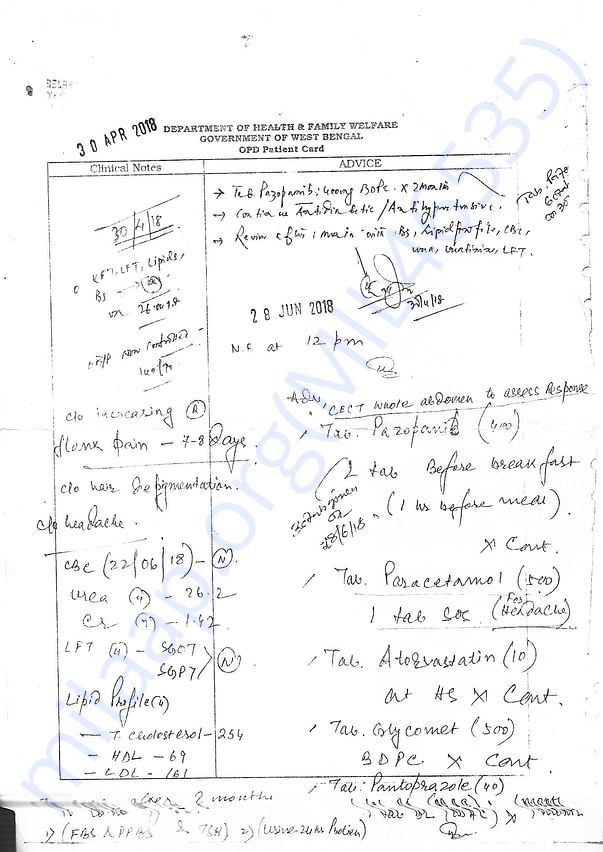 30 APR 2018
DEPARTMENT OF HEALTH & FAMILY WELFARE
GOVERNMENT OF WEST BENGAL
OPD Patient Card
Clinical Notes
ADVICE
30/4/18
KFT, LFT, Lipids,
BS
→ Tab. Pazopanib: 400mg BDPC. X 2 months
→ Continue Antidiabetic / Antihypertensive.
→ Review after 1 month with BS, Lipid profile, CBC,
urea, creatinine, LFT.
30/4/18
28 JUN 2018
at 12 pm
c/o increasing (R)
flank pain – 7-8 days.
c/o hair depigmentation.
c/o headache.
CBC (22/06/18) – (N)
Urea (") – 26.2
Cr (") – 1.42
LFT (") – SGOT
SGPT
(N)
Lipid Profile (")
— T. Cholesterol – 254
— HDL – 69
— LDL – 161
Adv, CECT whole abdomen to assess Response
Tab. Pazopanib (400)
2 tab Before breakfast
(1 hr before meal).
28/6/18
X Cont.
Tab. Paracetamol (500)
1 tab SOS (For Headache)
Tab. Atorvastatin (10)
at HS X Cont.
Tab. Glycomet (500)
BDPC X Cont
Tab. Pantoprazole (40)
after 2 months
1) (FBS & PPBS & TSH) 2) (Urine-24hr Protien)
milaap.org(MIL46535)